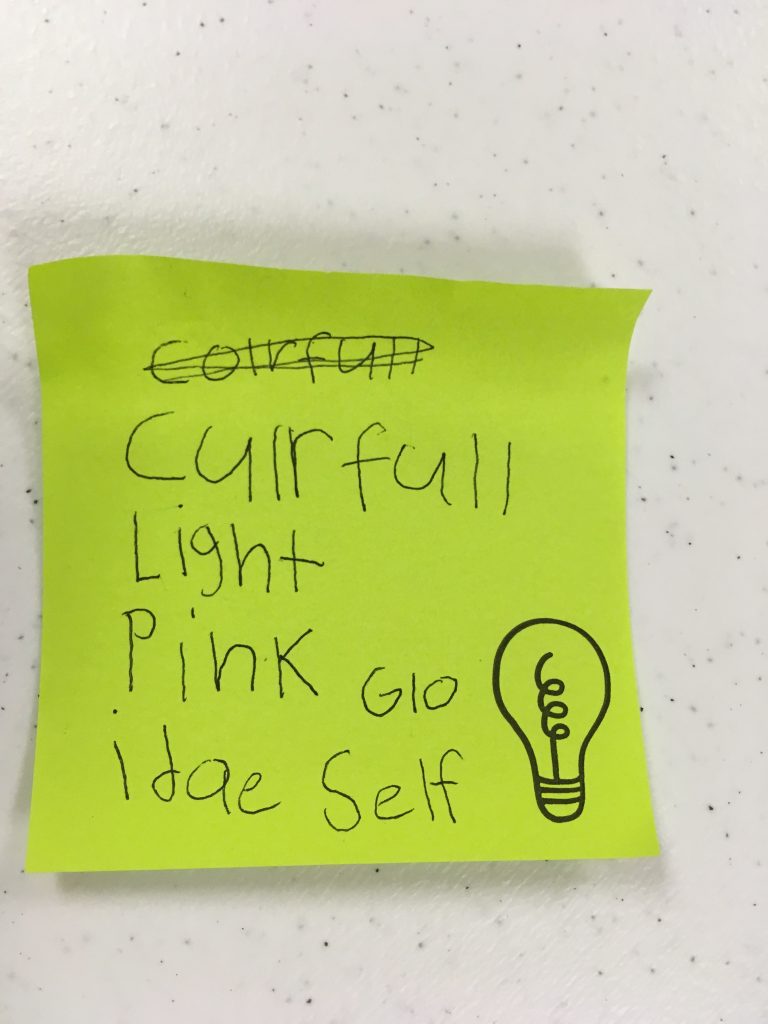 colrfull
Culrfull
Light
Pink Glo
idae Self